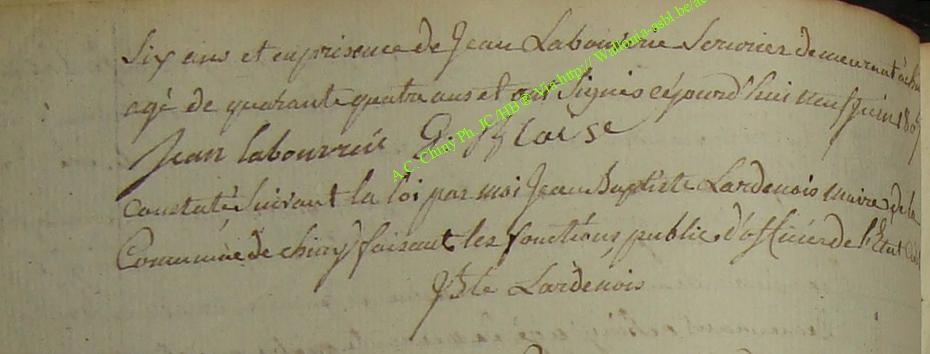 Six ans et en présence de Jean Labouverie Serurier demeurant à
agé de quarante quatre ans et ont Signés cejourd'hui neuf juin 180
Jean labouverie G. J. Blaise
Constaté Suivant la loi par moi Jean Baptiste Lardenois maire de la
Commune de chiny faisant les fonctions public d'officier de l'Etat Civil
Jbte Lardenois
A.C. Chiny Ph. JC/HB @ Via http:// Wallonia-asbl.be/ac